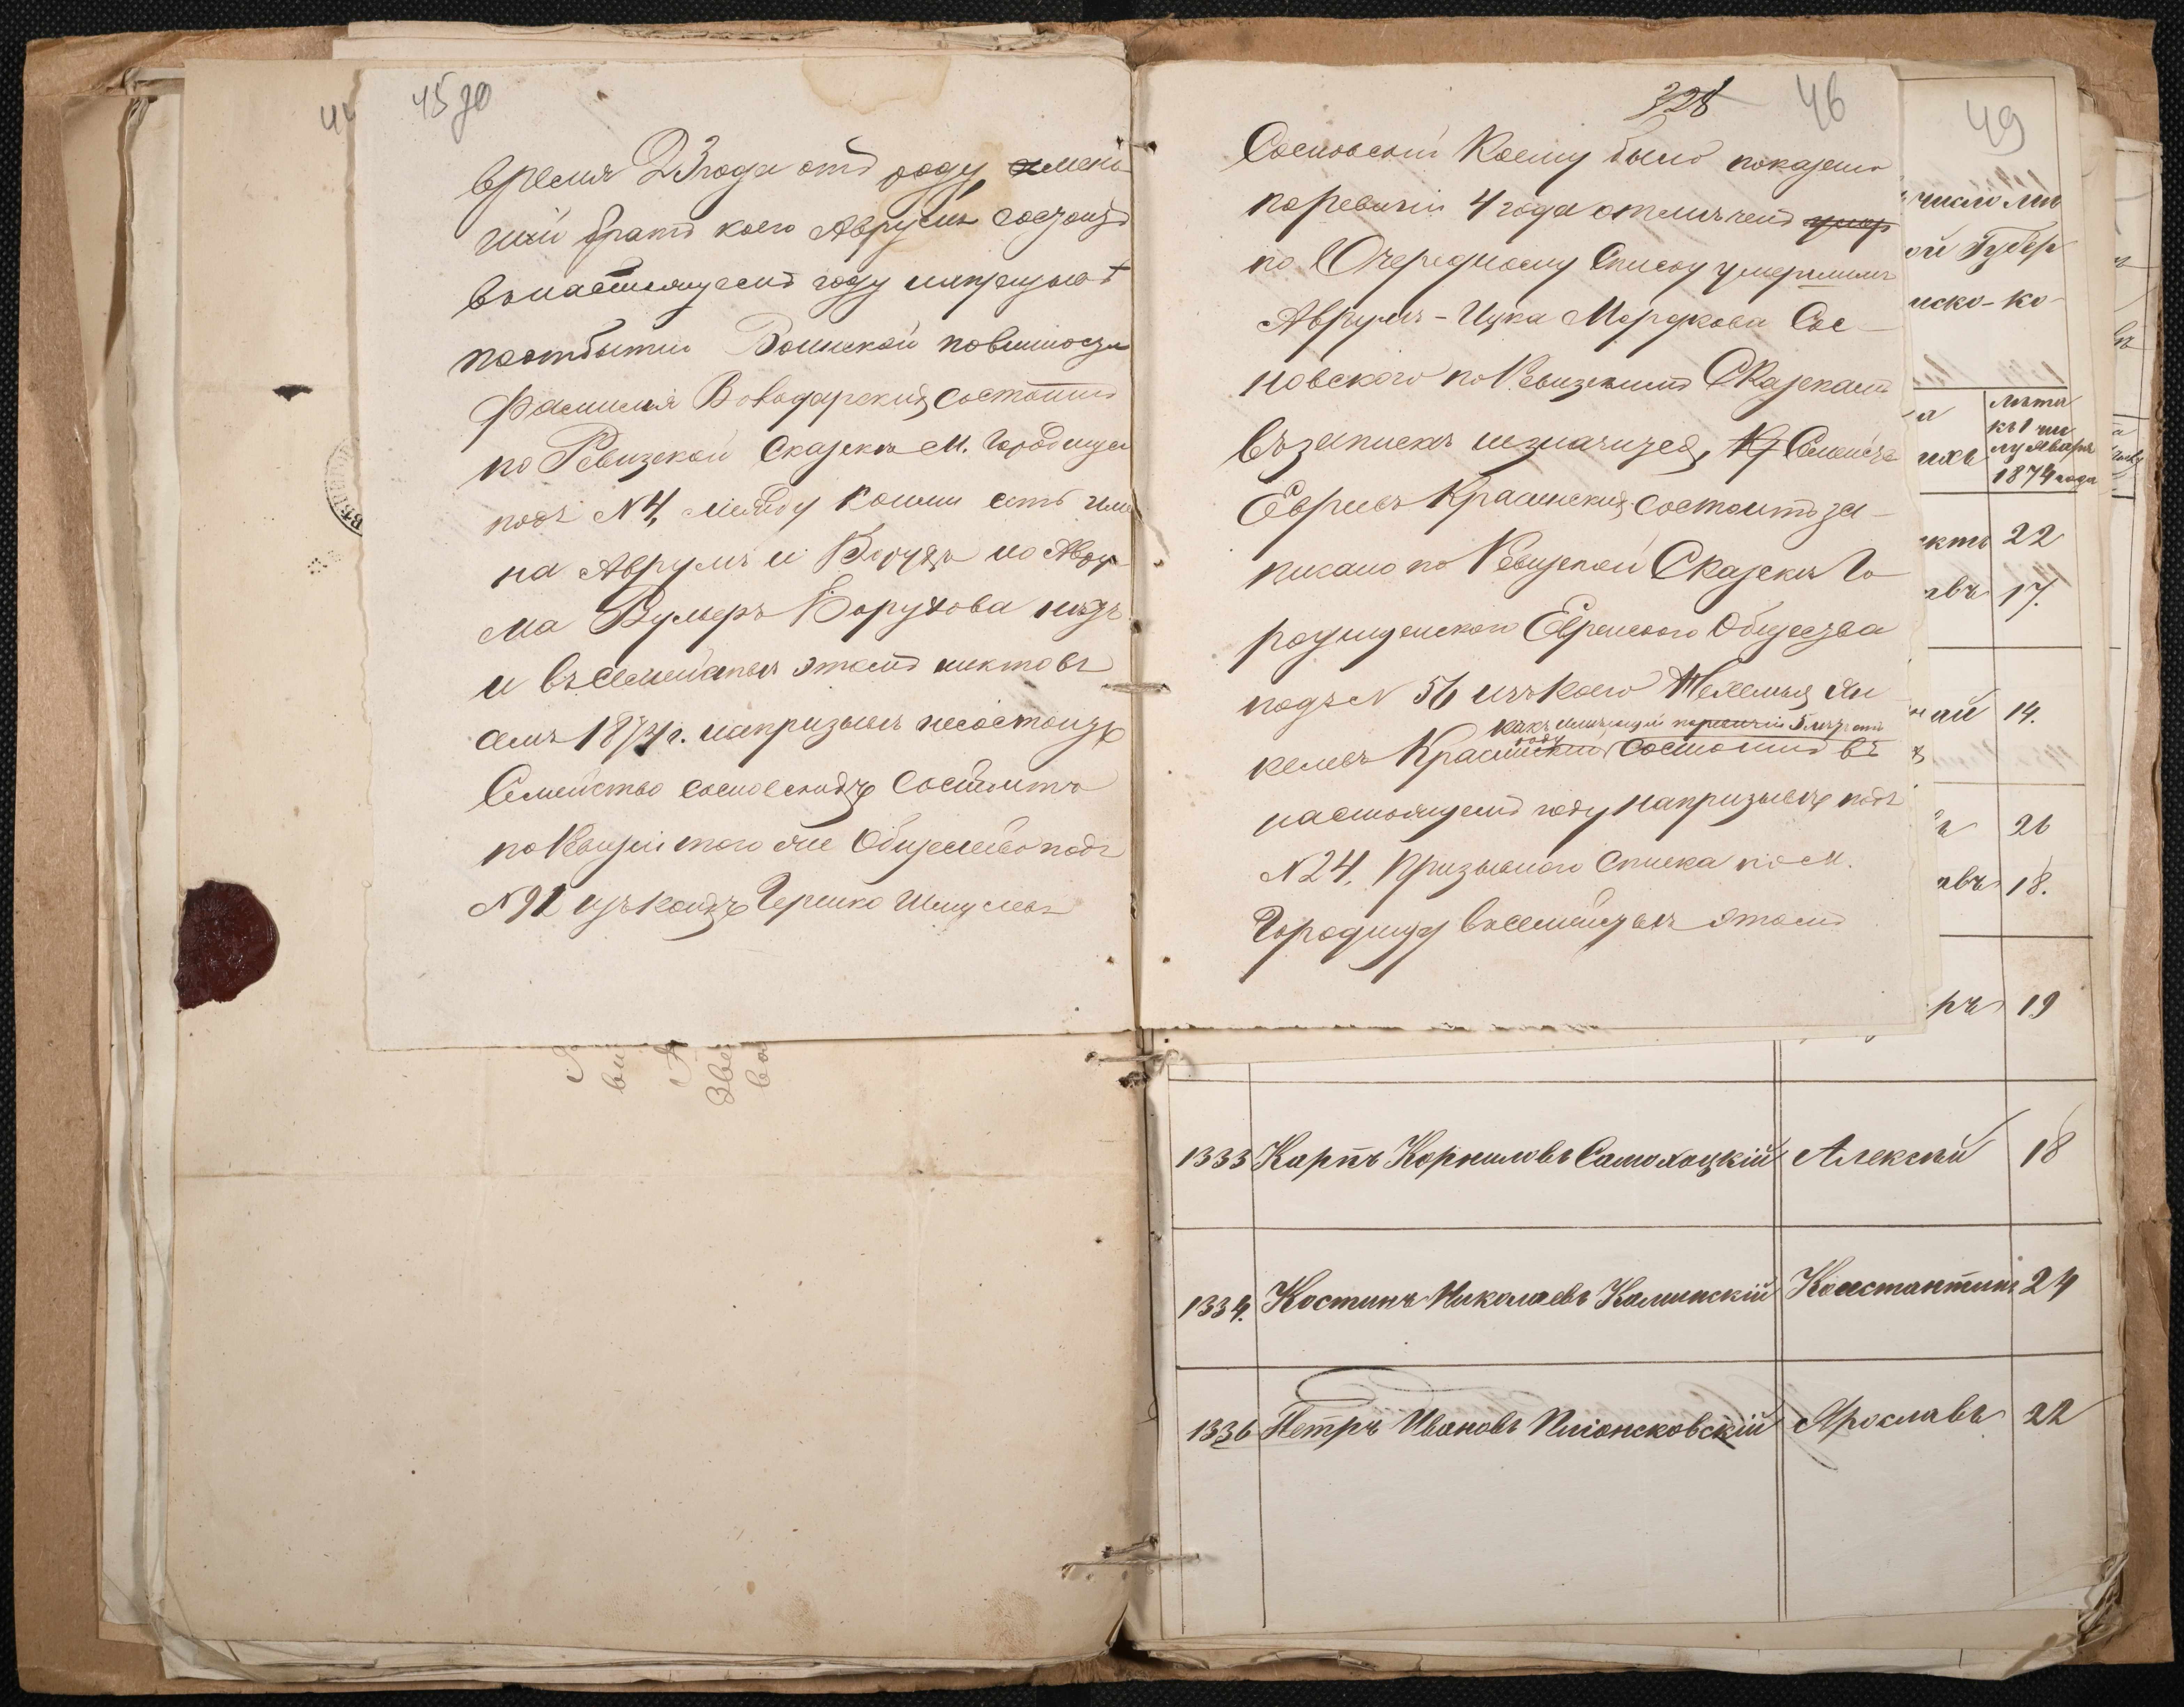 45 зв
время 23 года отъ роду, а мень-
шій братъ коего Аврумъ состоитъ
въ настоящемъ году на призывѣ
по отбытію Воинской повинности
Фамилія Володарскихъ состоитъ
по Ревизской Сказкѣ М. Городища
подъ № 4, между коими есть име-
на Аврумъ и Борухъ но Авру-
ма Вульфъ Борухова нѣтъ
и въ семействѣ этомъ никто въ
семъ 1874 г. на призывѣ не состоитъ
Семейство Сосновскихъ состоитъ
по Ревизіи того же Общества подъ
№ 91 изъ коихъ Гершко Шмулевъ
328
46
Сосновскій Коему было показано
по ревизіи 4 года отмѣченъ
по Очередному Списку умершимъ
Аврумъ-Ицка Мордкова Сос-
новскаго по Ревизскимъ Сказкамъ
въ запискѣ не значится, Семейство
Евреевъ Красинскихъ состоитъ за-
писано по Ревизской Сказкѣ Го-
родищенскаго Еврейскаго Общества
подъ № 56 изъ коего Ян
какъ имѣющій по ревизіи 5 лѣтъ отъ
роду
келевъ Красинскій состоитъ въ
настоящемъ году на призывѣ подъ
№ 24, Призывнаго Списка по м.
Городищу въ семействѣ этомъ
49
число лѣт
ой Губер
нско-ко-
лѣта
къ 1 чи
слу Января
1874 года
22
17.
ай 14.
26
авъ 18.
ръ 19
1333 Карпъ Корниловъ Самохоцкій Алексѣй 18
1334. Костинъ Николаевъ Калинскій Константинъ 24
1336 Петръ Ивановъ Піонсковскій Ярославъ 22